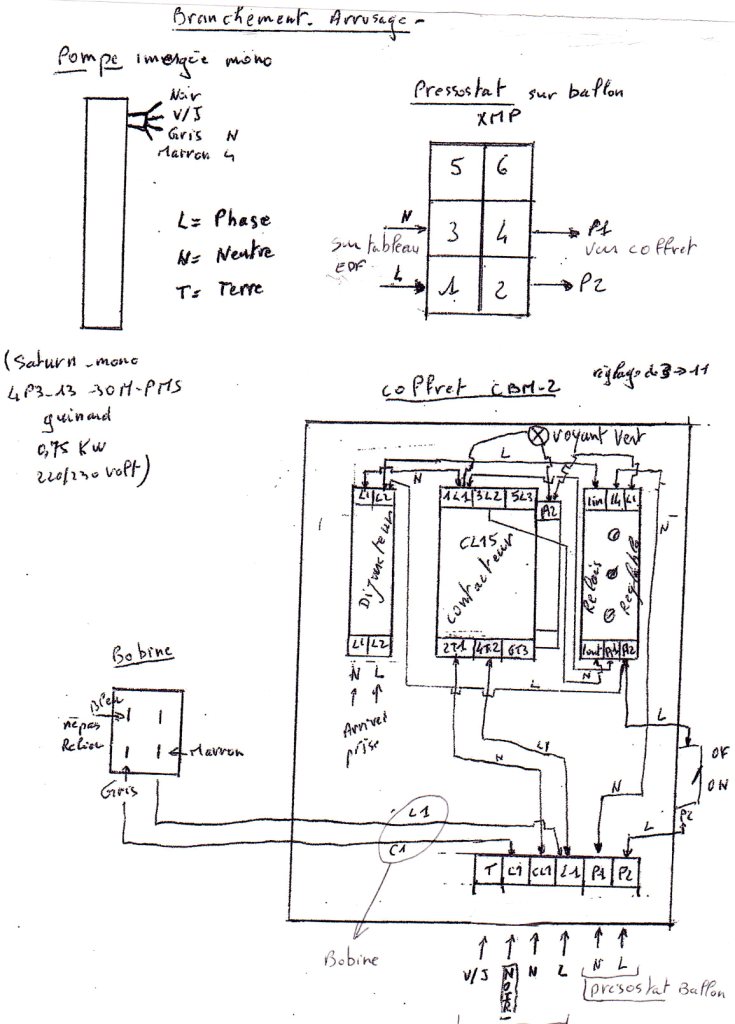 Branchement - Arrosage -
Pompe imergée mono
Noir
V/J
Gris N
Marron L
L = Phase
N = Neutre
T = Terre
Pressostat sur ballon
XMP
5 6
3 4
1 2
N
Sur tableau
EDF
L
P1
Vers coffret
P2
(Saturn - mono
4P3-13-30M-PMS
guinard
0,75 KW
220/230 Volt)
coffret CBM-2
réglage de 3 → 11
voyant vert
L
N
L1 L2
1L1 3L2 5L3
A2
Lin L4 L1
Disjoncteur
CL15
contacteur
Relais
Réglable
N
L1 L2
2T1 4T2 6T3
Lout A1 A2
N L
Arrivée
prise
N
L
L
Bobine
Bleu
ne pas
Relier
Marron
Gris
N
L1
N
L
OF
ON
P2
L
L1
C1
T L1 CL1 L1 P1 P2
Bobine
V/J
NOIR
N
L
N L
pressostat Ballon